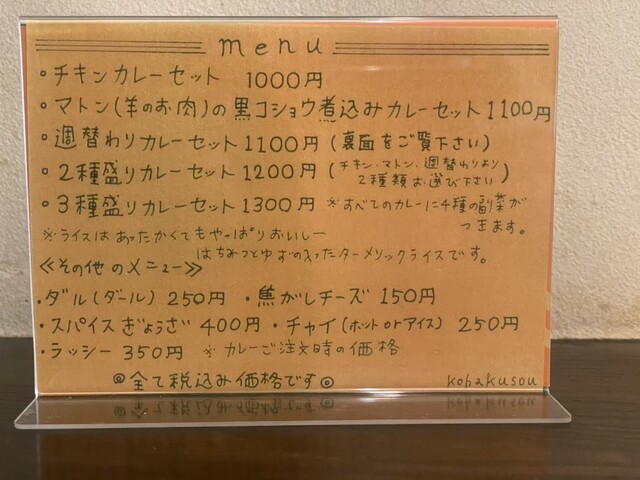 menu
・チキンカレーセット 1000円
・マトン(羊のお肉)の黒コショウ煮込みカレーセット 1100円
・週替わりカレーセット 1100円 (裏面をご覧下さい)
・2種盛りカレーセット 1200円 (チキン、マトン、週替わりより2種類お選び下さい)
・3種盛りカレーセット 1300円 ※すべてのカレーに4種の副菜がつきます。
※ライスはあったかくてもやっぱりおいしー
はちみつとゆずの入ったターメリックライスです。
≪その他のメニュー≫
・ダル(ダール) 250円 ・焦がしチーズ 150円
・スパイスぎょうざ 400円 ・チャイ(ホットorアイス) 250円
・ラッシー 350円 ※カレーご注文時の価格
◎全て税込み価格です◎
kohakusou